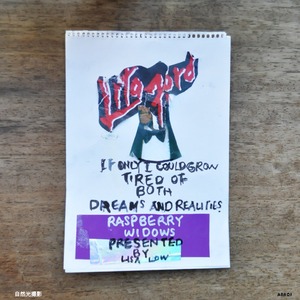 Lita Ford
IF ONLY I COULD GROW
TIRED OF
BOTH
DREAMS AND REALITIES
RASPBERRY
WIDOWS
PRESENTED
BY
LISA LOW
自然光撮影